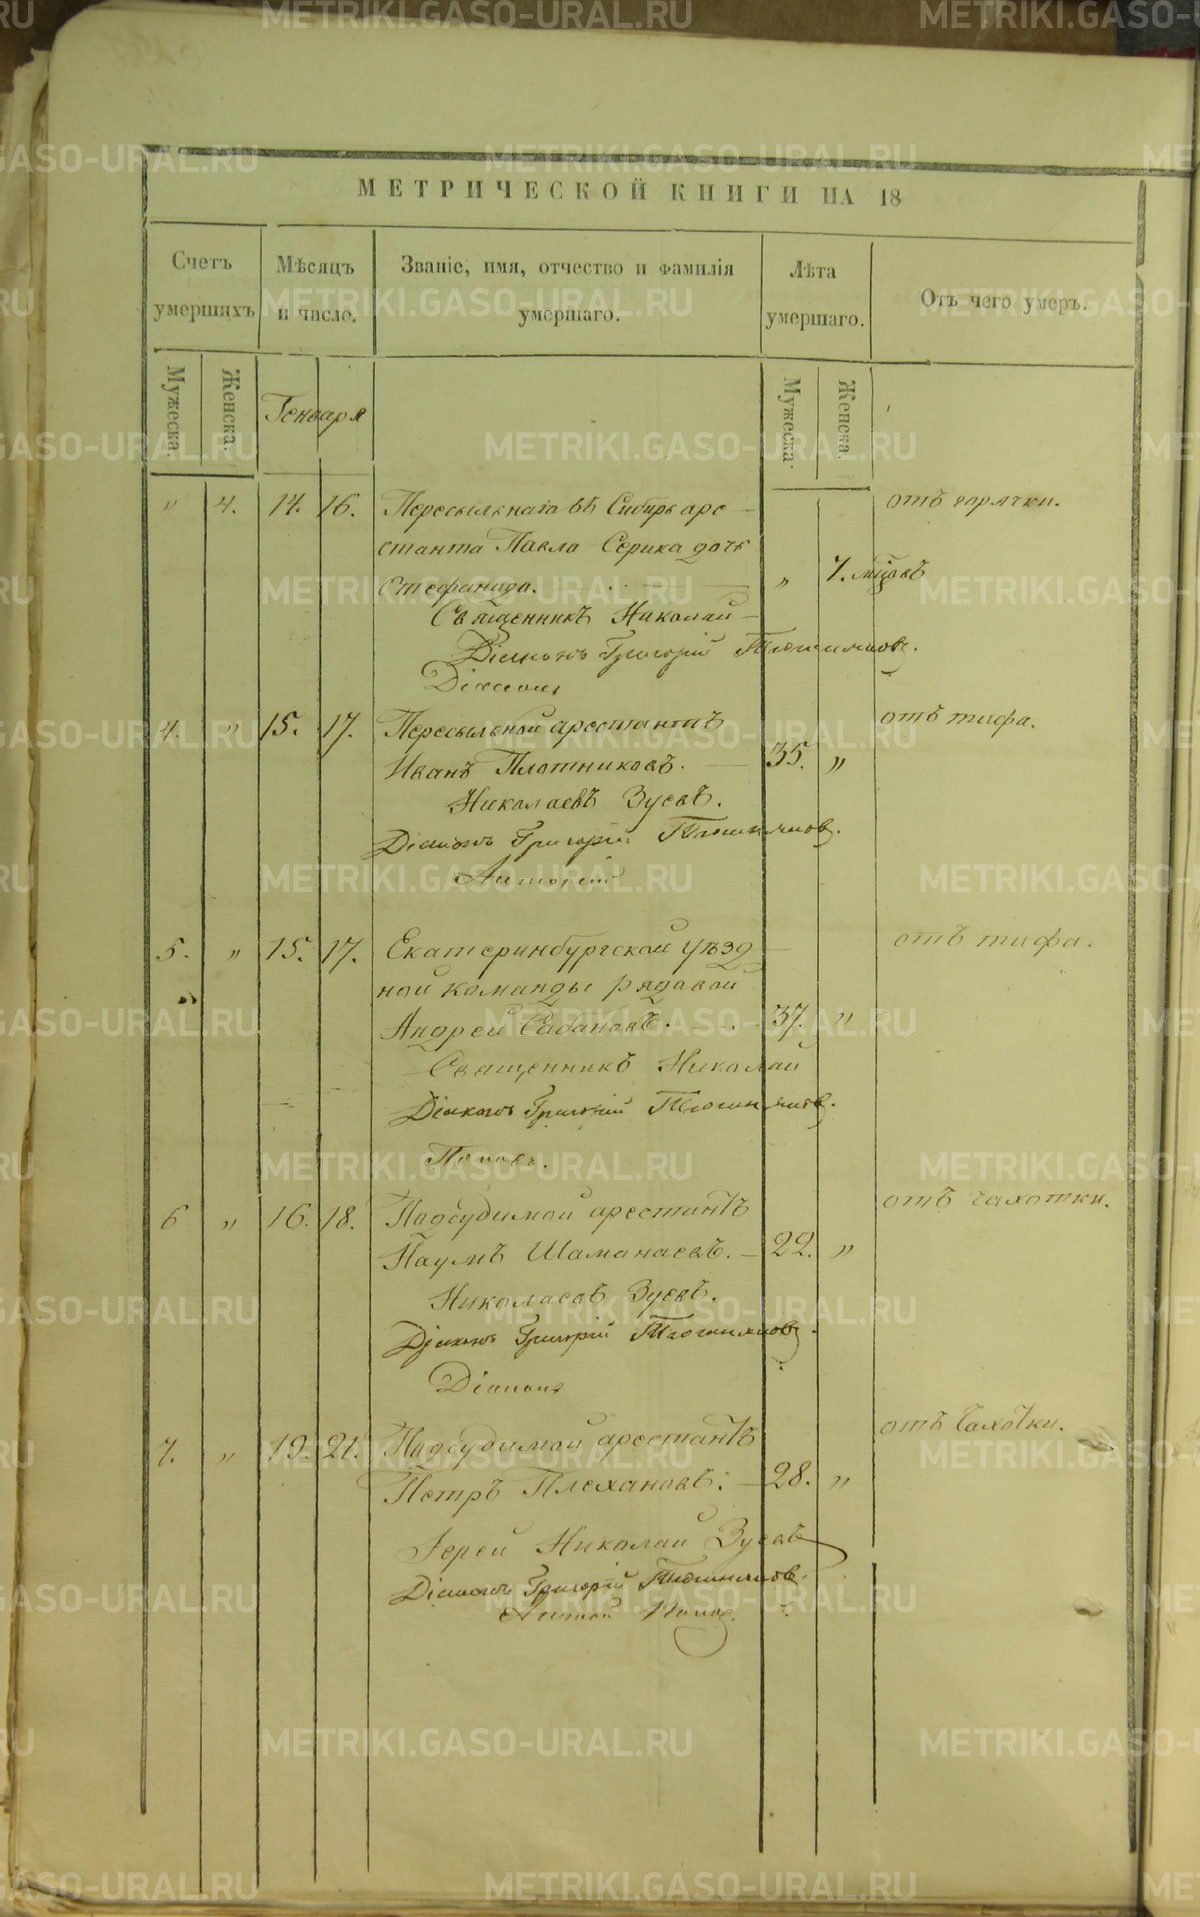 МЕТРИЧЕСКОЙ КНИГИ НА 18
Счетъ умершихъ
Мѣсяцъ и число.
Званіе, имя, отчество и фамилія умершаго.
Лѣта умершаго.
Отъ чего умеръ.
Мужеска.
Женска.
Генваря
Мужеска.
Женска.
" 4. 14. 16. Пересыльнаго въ Сибирь аре- отъ горячки.
станта Павла Серика дочь
Стефанида. " 7. мцовъ
Священникъ Николай
Діаконъ Григорій
Діаконъ
4. " 15. 17. Пересыльной арестантъ отъ тифа.
Иванъ Плотниковъ. 35. "
Николаевъ Зуевъ.
Діаконъ Григорій
Антоній
5. " 15. 17. Екатеринбургской уѣзд- отъ тифа.
ной команды рядовой
Андрей 37. "
Священникъ Николай
Діаконъ Григорій
Поповъ.
6 " 16. 18. Подсудимой арестантъ отъ чахотки.
Наумъ Шаманаевъ. 22. "
Николаевъ Зуевъ.
Діаконъ Григорій
Діаконъ
7. " 19. 21. Подсудимой арестантъ отъ чахотки.
Петръ Плехановъ. 28. "
Іерей Николай Зуевъ
Діаконъ Григорій
METRIKI.GASO-URAL.RU